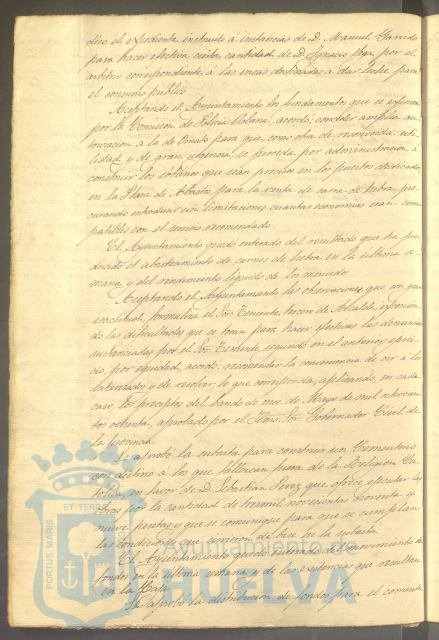 dico el expediente instruido á instancias de D. Manuel Garrido
para hacer efectiva cierta cantidad de D. Ignacio por el
arbitrio correspondiente á las encas destinadas á dar leche para
el consumo publico
Aceptando el Ayuntamiento los fundamentos que se exponen
por la Comision de Policia Urbana, acordó, conceder amplia au-
torizacion á la de Ornato para que, como obra de reconocida uti-
lidad y de gran urgencia, se proceda por administracion á
construir los sótanos que sean precisos en los puestos dedicados
en la Plaza de Abastos, para la venta de carne de hebra, pro-
curando introducir sin limitaciones cuantas economias sean com-
patibles con el servicio recomendado
El Ayuntamiento quedó enterado del resultado que ha pro-
ducido el abastecimiento de carnes de hebra en la última se-
mana y del rendimiento liquido de los menudos
Aceptando el Ayuntamiento las observaciones que con gran
exactitud, formuliza el Sor. Teniente tercero de Alcalde, exponien-
do las dificultades que se tocan para hacer efectivas las denuncias
sustanciadas por el Sor. Teniente segundo en el anterior ejerci-
cio por equidad, acordó, recomendar la conveniencia de oir á los
interesados y de resolver lo que corresponda, aplicando, en cada
caso, los preceptos del bando de once de Mayo de mil ochocien-
tos ochenta, aprobado por el Ilmo. Sor. Gobernador Civil de
la Provincia
Se aprobó la subasta para construir un Cementerio
con destino á los que fallezcan fuera de la Religion Ca-
tolica, en favor de D. Sebastian Perez que ofrece ejecutar las
obras por la cantidad de tres mil novecientas noventa y
nueve pesetas y que se comunique para que se cumplan
las condiciones que sirvieron de base en la subasta
El Ayuntamiento quedó enterado del movimiento de
fondos en la última semana y de las existencias que resultan
en la Caja
Se aprobó la distribucion de fondos para el corriente
PORTUS MARIS
ET TERRÆ
Ayuntamiento de
HUELVA